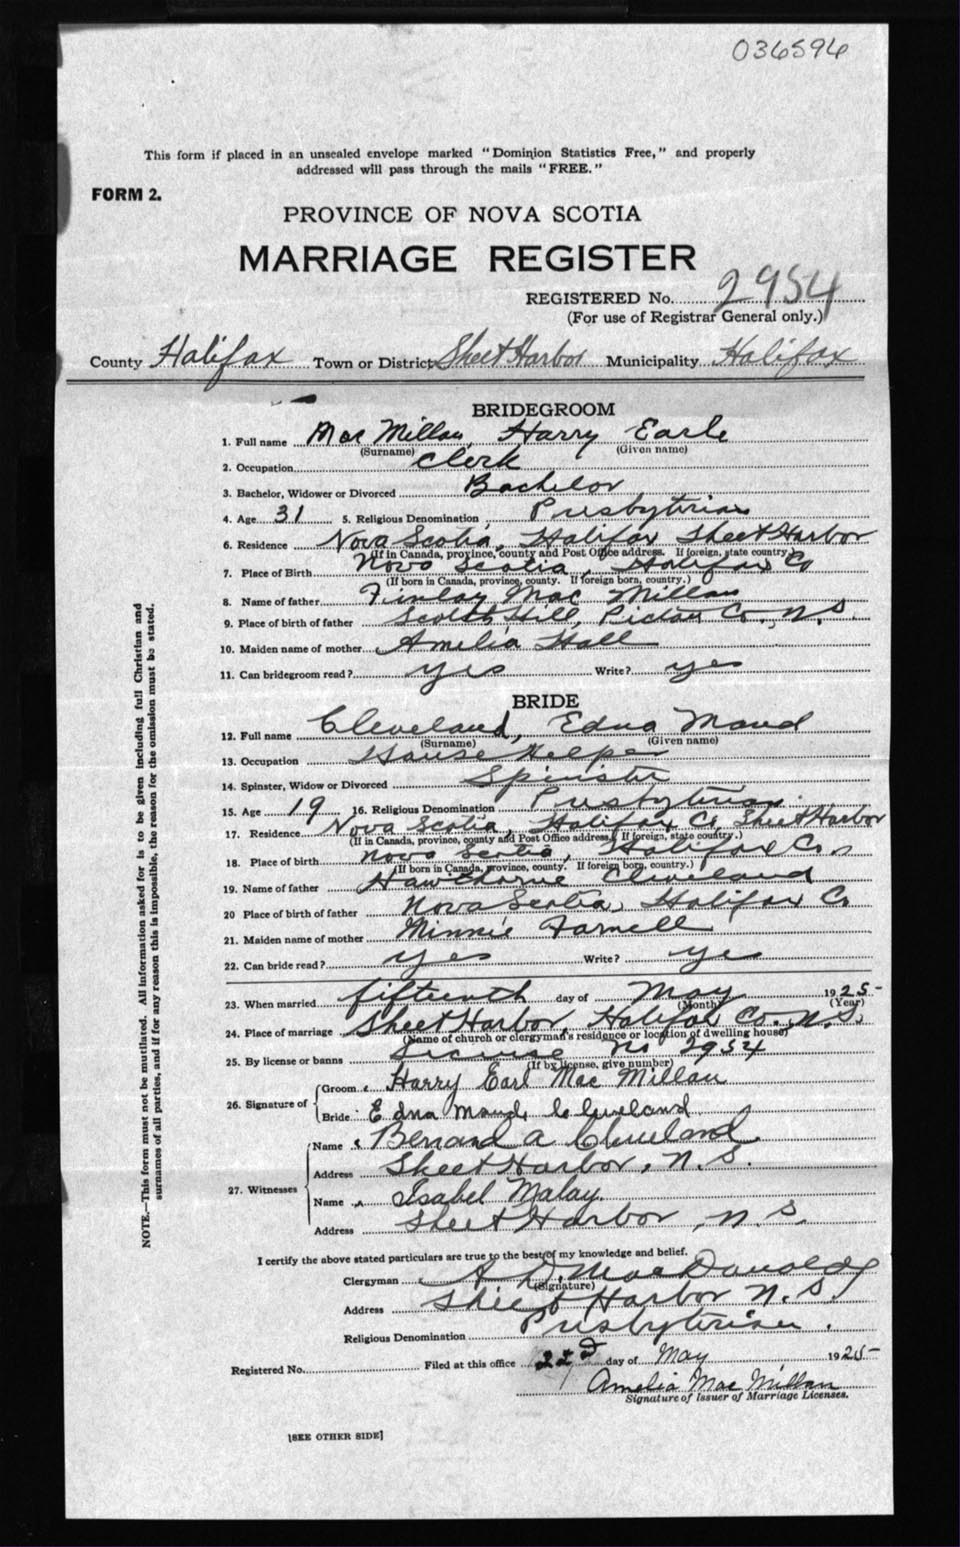 036594
This form if placed in an unsealed envelope marked "Dominion Statistics Free," and properly
addressed will pass through the mails "FREE."
FORM 2.
PROVINCE OF NOVA SCOTIA
MARRIAGE REGISTER
REGISTERED No. 2954
(For use of Registrar General only.)
County Halifax Town or District Sheet Harbor Municipality Halifax
BRIDEGROOM
1. Full name Mac Millan, Harry Earle
(Surname) (Given name)
2. Occupation Clerk
3. Bachelor, Widower or Divorced Bachelor
4. Age 31 5. Religious Denomination Presbyterian
6. Residence Nova Scotia, Halifax Sheet Harbor
(If in Canada, province, county and Post Office address. If foreign, state country.)
7. Place of Birth Nova Scotia, Halifax Co
(If born in Canada, province, county. If foreign born, country.)
8. Name of father Finlay Mac Millan
9. Place of birth of father Scotch Hill, Pictou Co., N.S.
10. Maiden name of mother Amelia Hall
11. Can bridegroom read? yes Write? yes
BRIDE
12. Full name Cleveland, Edna Maud
(Surname) (Given name)
13. Occupation House Helper
14. Spinster, Widow or Divorced Spinster
15. Age 19 16. Religious Denomination Presbyterian
17. Residence Nova Scotia, Halifax Co, Sheet Harbor
(If in Canada, province, county and Post Office address. If foreign, state country.)
18. Place of birth Nova Scotia, Halifax Co.
(If born in Canada, province, county. If foreign born, country.)
19. Name of father Hawthorne Cleveland
20 Place of birth of father Nova Scotia, Halifax Co
21. Maiden name of mother Minnie Farnell
22. Can bride read? yes Write? yes
23. When married fifteenth day of May 1925
(Month) (Year)
24. Place of marriage Sheet Harbor, Halifax Co., N.S.
(Name of church or clergyman's residence or location of dwelling house)
25. By license or banns License no 2954
(If by license, give number)
26. Signature of Groom Harry Earl Mac Millan
Bride Edna Maud Cleveland
27. Witnesses Name Bernard A Cleveland
Address Sheet Harbor, N.S.
Name Isabel Malay
Address Sheet Harbor, N.S.
I certify the above stated particulars are true to the best of my knowledge and belief.
Clergyman A. D. MacDonald
(Signature)
Address Sheet Harbor N.S.
Religious Denomination Presbyterian.
Registered No. Filed at this office 22d day of May 1925
Amelia Mac Millan
Signature of Issuer of Marriage Licenses.
[SEE OTHER SIDE]
NOTE.—This form must not be mutilated. All information asked for is to be given including full Christian and
surnames of all parties, and if for any reason this is impossible, the reason for the omission must be stated.